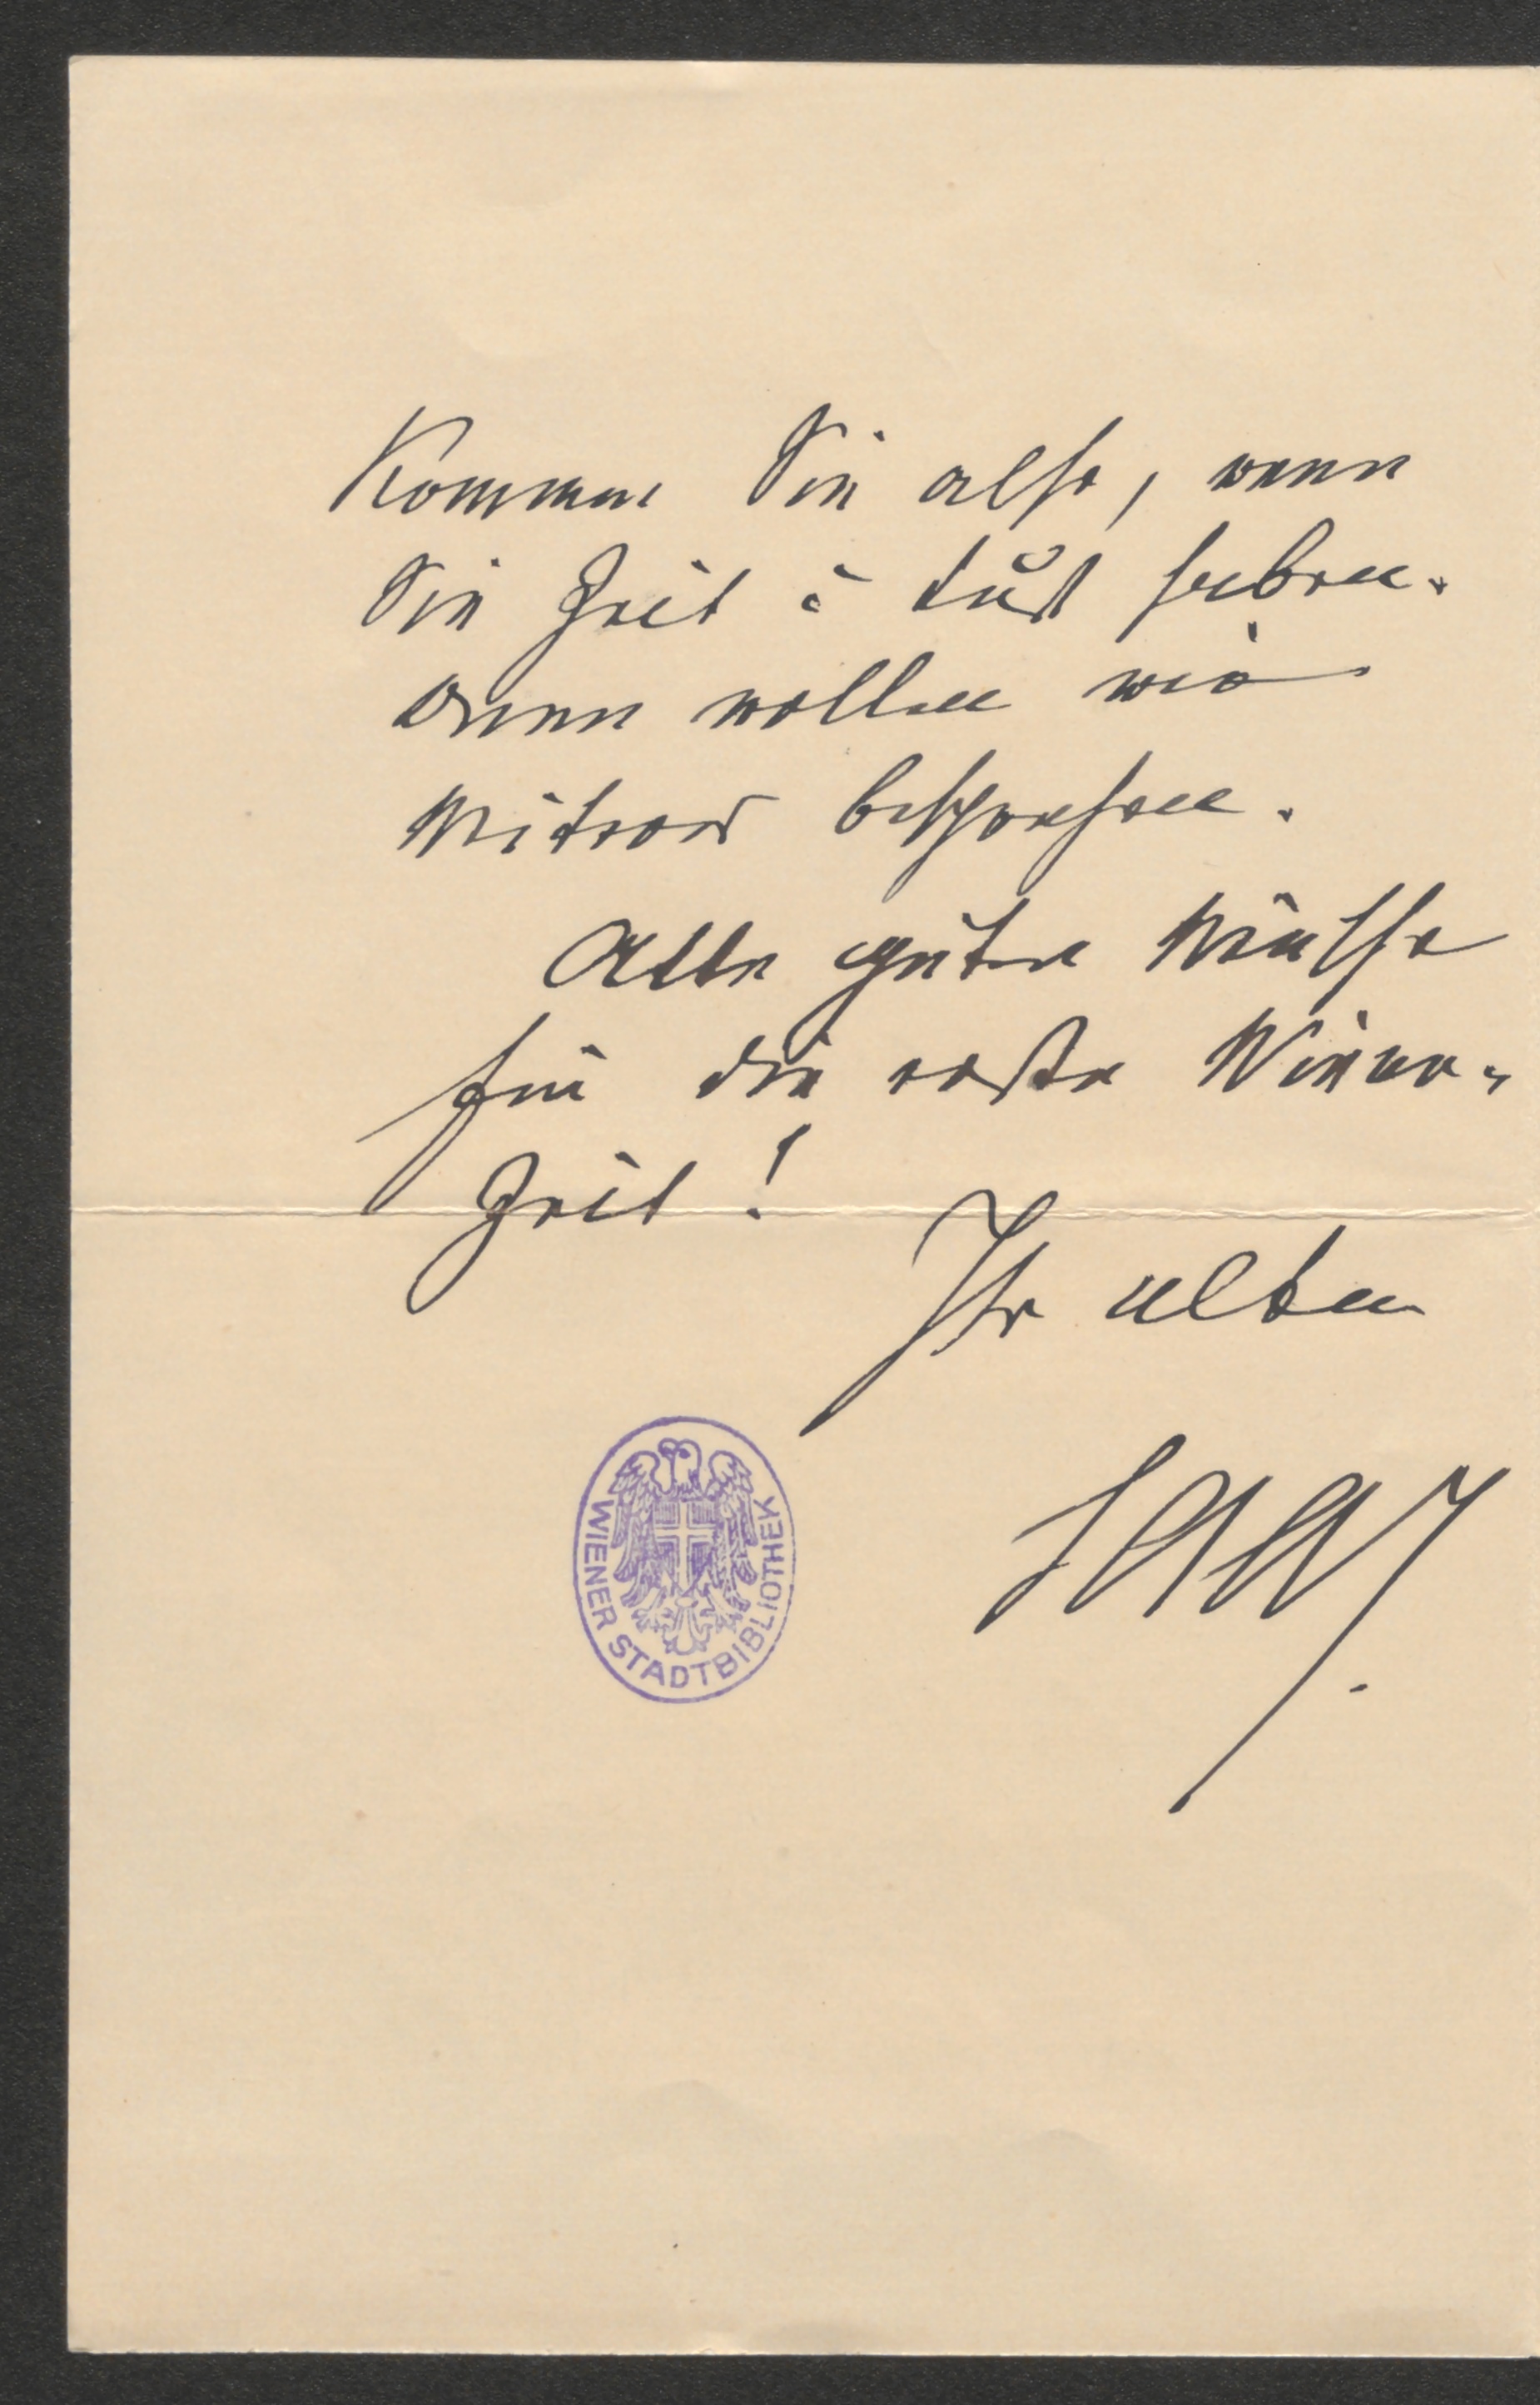 Kommen Sie also, wenn
Sie Zeit u Lust haben.
Dann wollen wir
Weiteres besprechen.
Alle guten Wünsche
für die erste Wiener-
Zeit!
Ihr alter
Saar.
WIENER STADTBIBLIOTHEK